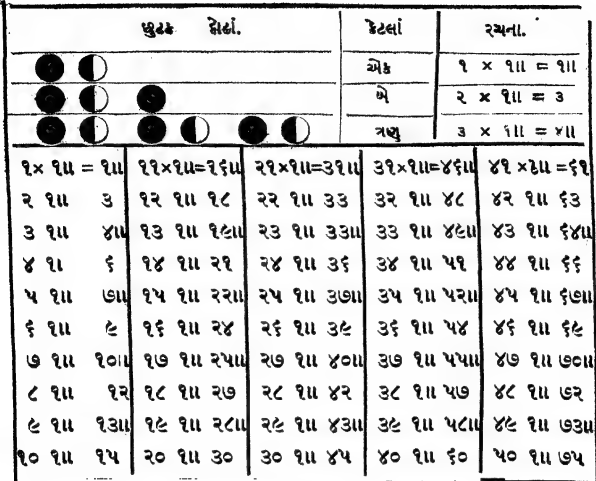 છુટક દોઢાં. કેટલાં રચના.
એક ૧ × ૧॥ = ૧॥
બે ૨ × ૧॥ = ૩
ત્રણ ૩ × ૧॥ = ૪॥
૧× ૧॥ = ૧॥ ૧૧×૧॥=૧૬॥ ૨૧×૧॥=૩૧॥ ૩૧×૧॥=૪૬॥ ૪૧ ×૧॥ =૬૧
૨ ૧॥ ૩ ૧૨ ૧॥ ૧૮ ૨૨ ૧॥ ૩૩ ૩૨ ૧॥ ૪૮ ૪૨ ૧॥ ૬૩
૩ ૧॥ ૪॥ ૧૩ ૧॥ ૧૯॥ ૨૩ ૧॥ ૩૩॥ ૩૩ ૧॥ ૪૯॥ ૪૩ ૧॥ ૬૪॥
૪ ૧। ૬ ૧૪ ૧॥ ૨૧ ૨૪ ૧॥ ૩૬ ૩૪ ૧॥ ૫૧ ૪૪ ૧॥ ૬૬
૫ ૧॥ ૭॥ ૧૫ ૧॥ ૨૨॥ ૨૫ ૧॥ ૩૭॥ ૩૫ ૧॥ ૫૨॥ ૪૫ ૧॥ ૬૭॥
૬ ૧॥ ૯ ૧૬ ૧॥ ૨૪ ૨૬ ૧॥ ૩૯ ૩૬ ૧॥ ૫૪ ૪૬ ૧॥ ૬૯
૭ ૧॥ ૧૦॥ ૧૭ ૧॥ ૨૫॥ ૨૭ ૧॥ ૪૦॥ ૩૭ ૧॥ ૫૫॥ ૪૭ ૧॥ ૭૦॥
૮ ૧॥ ૧૨ ૧૮ ૧॥ ૨૭ ૨૮ ૧॥ ૪૨ ૩૮ ૧॥ ૫૭ ૪૮ ૧॥ ૭૨
૯ ૧॥ ૧૩॥ ૧૯ ૧॥ ૨૮॥ ૨૯ ૧॥ ૪૩॥ ૩૯ ૧॥ ૫૮॥ ૪૯ ૧॥ ૭૩॥
૧૦ ૧॥ ૧૫ ૨૦ ૧॥ ૩૦ ૩૦ ૧॥ ૪૫ ૪૦ ૧॥ ૬૦ ૫૦ ૧॥ ૭૫